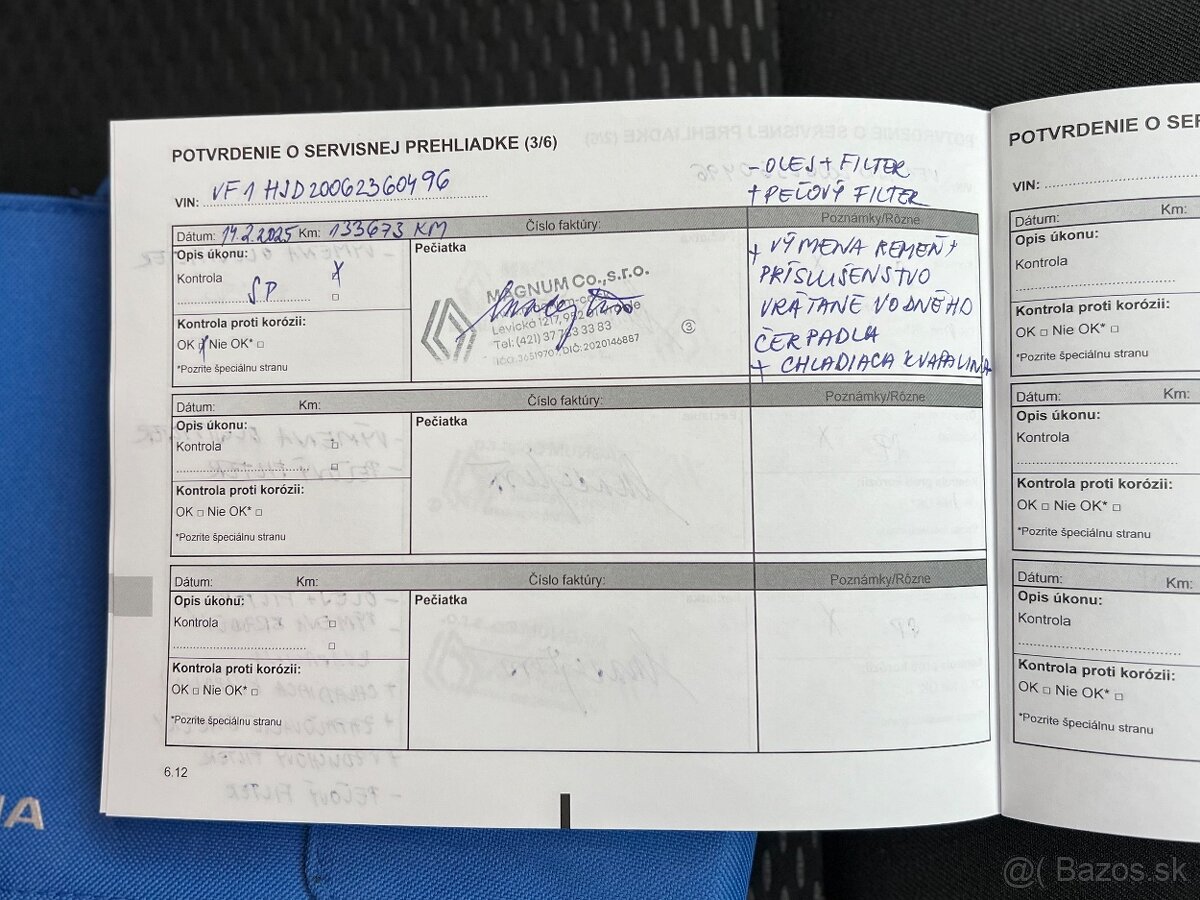 POTVRDENIE O SERVISNEJ PREHLIADKE (3/6)
VIN: VF1HJD20062360496
- OLEJ + FILTER
+ PEĽOVÝ FILTER
Dátum: 14.2.2025 Km: 133673 KM Číslo faktúry: Poznámky/Rôzne
Opis úkonu:
Kontrola X
SP
Kontrola proti korózii:
OK Nie OK*
*Pozrite špeciálnu stranu
Pečiatka
MAGNUM Co.,s.r.o.
Levická 1217, 952
Tel: (421) 37 783 33 83
DIČ: 2020146887
3
+ VÝMENA REMEŇ +
PRÍSLUŠENSTVO
VRÁTANE VODNÉHO
ČERPADLA
+ CHLADIACA KVAPALINA
Dátum: Km: Číslo faktúry: Poznámky/Rôzne
Opis úkonu:
Kontrola
Kontrola proti korózii:
OK Nie OK*
*Pozrite špeciálnu stranu
Pečiatka
Dátum: Km: Číslo faktúry: Poznámky/Rôzne
Opis úkonu:
Kontrola
Kontrola proti korózii:
OK Nie OK*
*Pozrite špeciálnu stranu
Pečiatka
6.12
POTVRDENIE O SER
VIN:
Dátum: Km:
Opis úkonu:
Kontrola
Kontrola proti korózii:
OK Nie OK*
*Pozrite špeciálnu stranu
Dátum: Km:
Opis úkonu:
Kontrola
Kontrola proti korózii:
OK Nie OK*
*Pozrite špeciálnu stranu
Dátum: Km:
Opis úkonu:
Kontrola
Kontrola proti korózii:
OK Nie OK*
*Pozrite špeciálnu stranu
IA
@( Bazos.sk